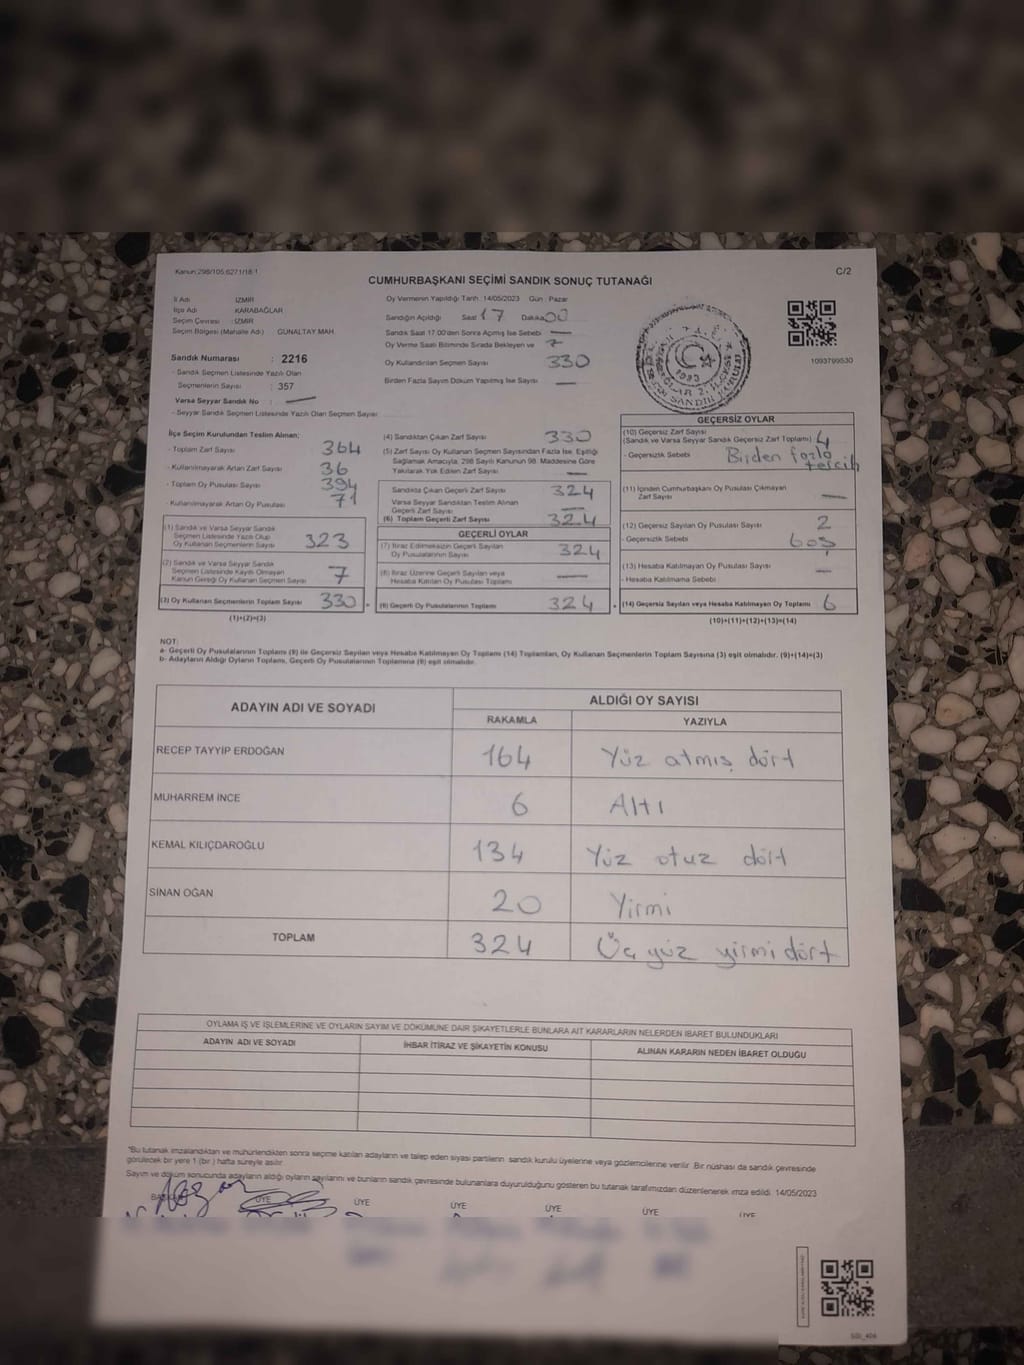 Kanun:298/105,6271/18-1
C/2
CUMHURBAŞKANI SEÇİMİ SANDIK SONUÇ TUTANAĞI
İl Adı : İZMİR
İlçe Adı : KARABAĞLAR
Seçim Çevresi : İZMİR
Seçim Bölgesi (Mahalle Adı) : GÜNALTAY MAH.
Sandık Numarası : 2216
- Sandık Seçmen Listesinde Yazılı Olan
Seçmenlerin Sayısı : 357
Varsa Seyyar Sandık No : —
- Seyyar Sandık Seçmen Listesinde Yazılı Olan Seçmen Sayısı
Oy Vermenin Yapıldığı Tarih :14/05/2023 Gün : Pazar
Sandığın Açıldığı Saat 17 Dakika 00
Sandık Saat 17.00'den Sonra Açılmış İse Sebebi —
Oy Verme Saati Bitiminde Sırada Bekleyen ve 7
Oy Kullandırılan Seçmen Sayısı 330
Birden Fazla Sayım Döküm Yapılmış İse Sayısı —
1093799530
İlçe Seçim Kurulundan Teslim Alınan;
- Toplam Zarf Sayısı 364
- Kullanılmayarak Artan Zarf Sayısı 36
- Toplam Oy Pusulası Sayısı 394
- Kullanılmayarak Artan Oy Pusulası 71
(1) Sandık ve Varsa Seyyar Sandık
Seçmen Listesinde Yazılı Olup
Oy Kullanan Seçmenlerin Sayısı 323
(2) Sandık ve Varsa Seyyar Sandık
Seçmen Listesinde Kayıtlı Olmayan
Kanun Gereği Oy Kullanan Seçmen Sayısı 7
(3) Oy Kullanan Seçmenlerin Toplam Sayısı 330 =
(1)+(2)=(3)
(4) Sandıktan Çıkan Zarf Sayısı 330
(5) Zarf Sayısı Oy Kullanan Seçmen Sayısından Fazla İse, Eşitliği
Sağlamak Amacıyla, 298 Sayılı Kanunun 98. Maddesine Göre
Yakılarak Yok Edilen Zarf Sayısı —
Sandıkta Çıkan Geçerli Zarf Sayısı 324
Varsa Seyyar Sandıktan Teslim Alınan
Geçerli Zarf Sayısı —
(6) Toplam Geçerli Zarf Sayısı 324
GEÇERLİ OYLAR
(7) İtiraz Edilmeksizin Geçerli Sayılan
Oy Pusulalarının Sayısı 324
(8) İtiraz Üzerine Geçerli Sayılan veya
Hesaba Katılan Oy Pusulası Toplamı —
(9) Geçerli Oy Pusulalarının Toplamı 324 +
GEÇERSİZ OYLAR
(10) Geçersiz Zarf Sayısı
(Sandık ve Varsa Seyyar Sandık Geçersiz Zarf Toplamı) 4
- Geçersizlik Sebebi Birden fazla
tercih
(11) İçinden Cumhurbaşkanı Oy Pusulası Çıkmayan
Zarf Sayısı —
(12) Geçersiz Sayılan Oy Pusulası Sayısı 2
- Geçersizlik Sebebi boş
(13) Hesaba Katılmayan Oy Pusulası Sayısı —
- Hesaba Katılmama Sebebi
(14) Geçersiz Sayılan veya Hesaba Katılmayan Oy Toplamı 6
(10)+(11)+(12)+(13)=(14)
NOT:
a- Geçerli Oy Pusulalarının Toplamı (9) ile Geçersiz Sayılan veya Hesaba Katılmayan Oy Toplamı (14) Toplamları, Oy Kullanan Seçmenlerin Toplam Sayısına (3) eşit olmalıdır. (9)+(14)=(3)
b- Adayların Aldığı Oyların Toplamı, Geçerli Oy Pusulalarının Toplamına (9) eşit olmalıdır.
ADAYIN ADI VE SOYADI
ALDIĞI OY SAYISI
RAKAMLA YAZIYLA
RECEP TAYYİP ERDOĞAN 164 Yüz atmış dört
MUHARREM İNCE 6 Altı
KEMAL KILIÇDAROĞLU 134 Yüz otuz dört
SİNAN OĞAN 20 Yirmi
TOPLAM 324 Üç yüz yirmi dört
OYLAMA İŞ VE İŞLEMLERİNE VE OYLARIN SAYIM VE DÖKÜMÜNE DAİR ŞİKAYETLERLE BUNLARA AİT KARARLARIN NELERDEN İBARET BULUNDUKLARI
ADAYIN ADI VE SOYADI İHBAR İTİRAZ VE ŞİKAYETİN KONUSU ALINAN KARARIN NEDEN İBARET OLDUĞU
*Bu tutanak imzalandıktan ve mühürlendikten sonra seçime katılan adayların ve talep eden siyasi partilerin sandık kurulu üyelerine veya gözlemcilerine verilir. Bir nüshası da sandık çevresinde
görülecek bir yere 1 (bir ) hafta süreyle asılır.
Sayım ve döküm sonucunda adayların aldığı oyların sayılarını ve bunların sandık çevresinde bulunanlara duyurulduğunu gösteren bu tutanak tarafımızdan düzenlenerek imza edildi. 14/05/2023
BAŞKAN ÜYE ÜYE ÜYE ÜYE ÜYE ÜYE